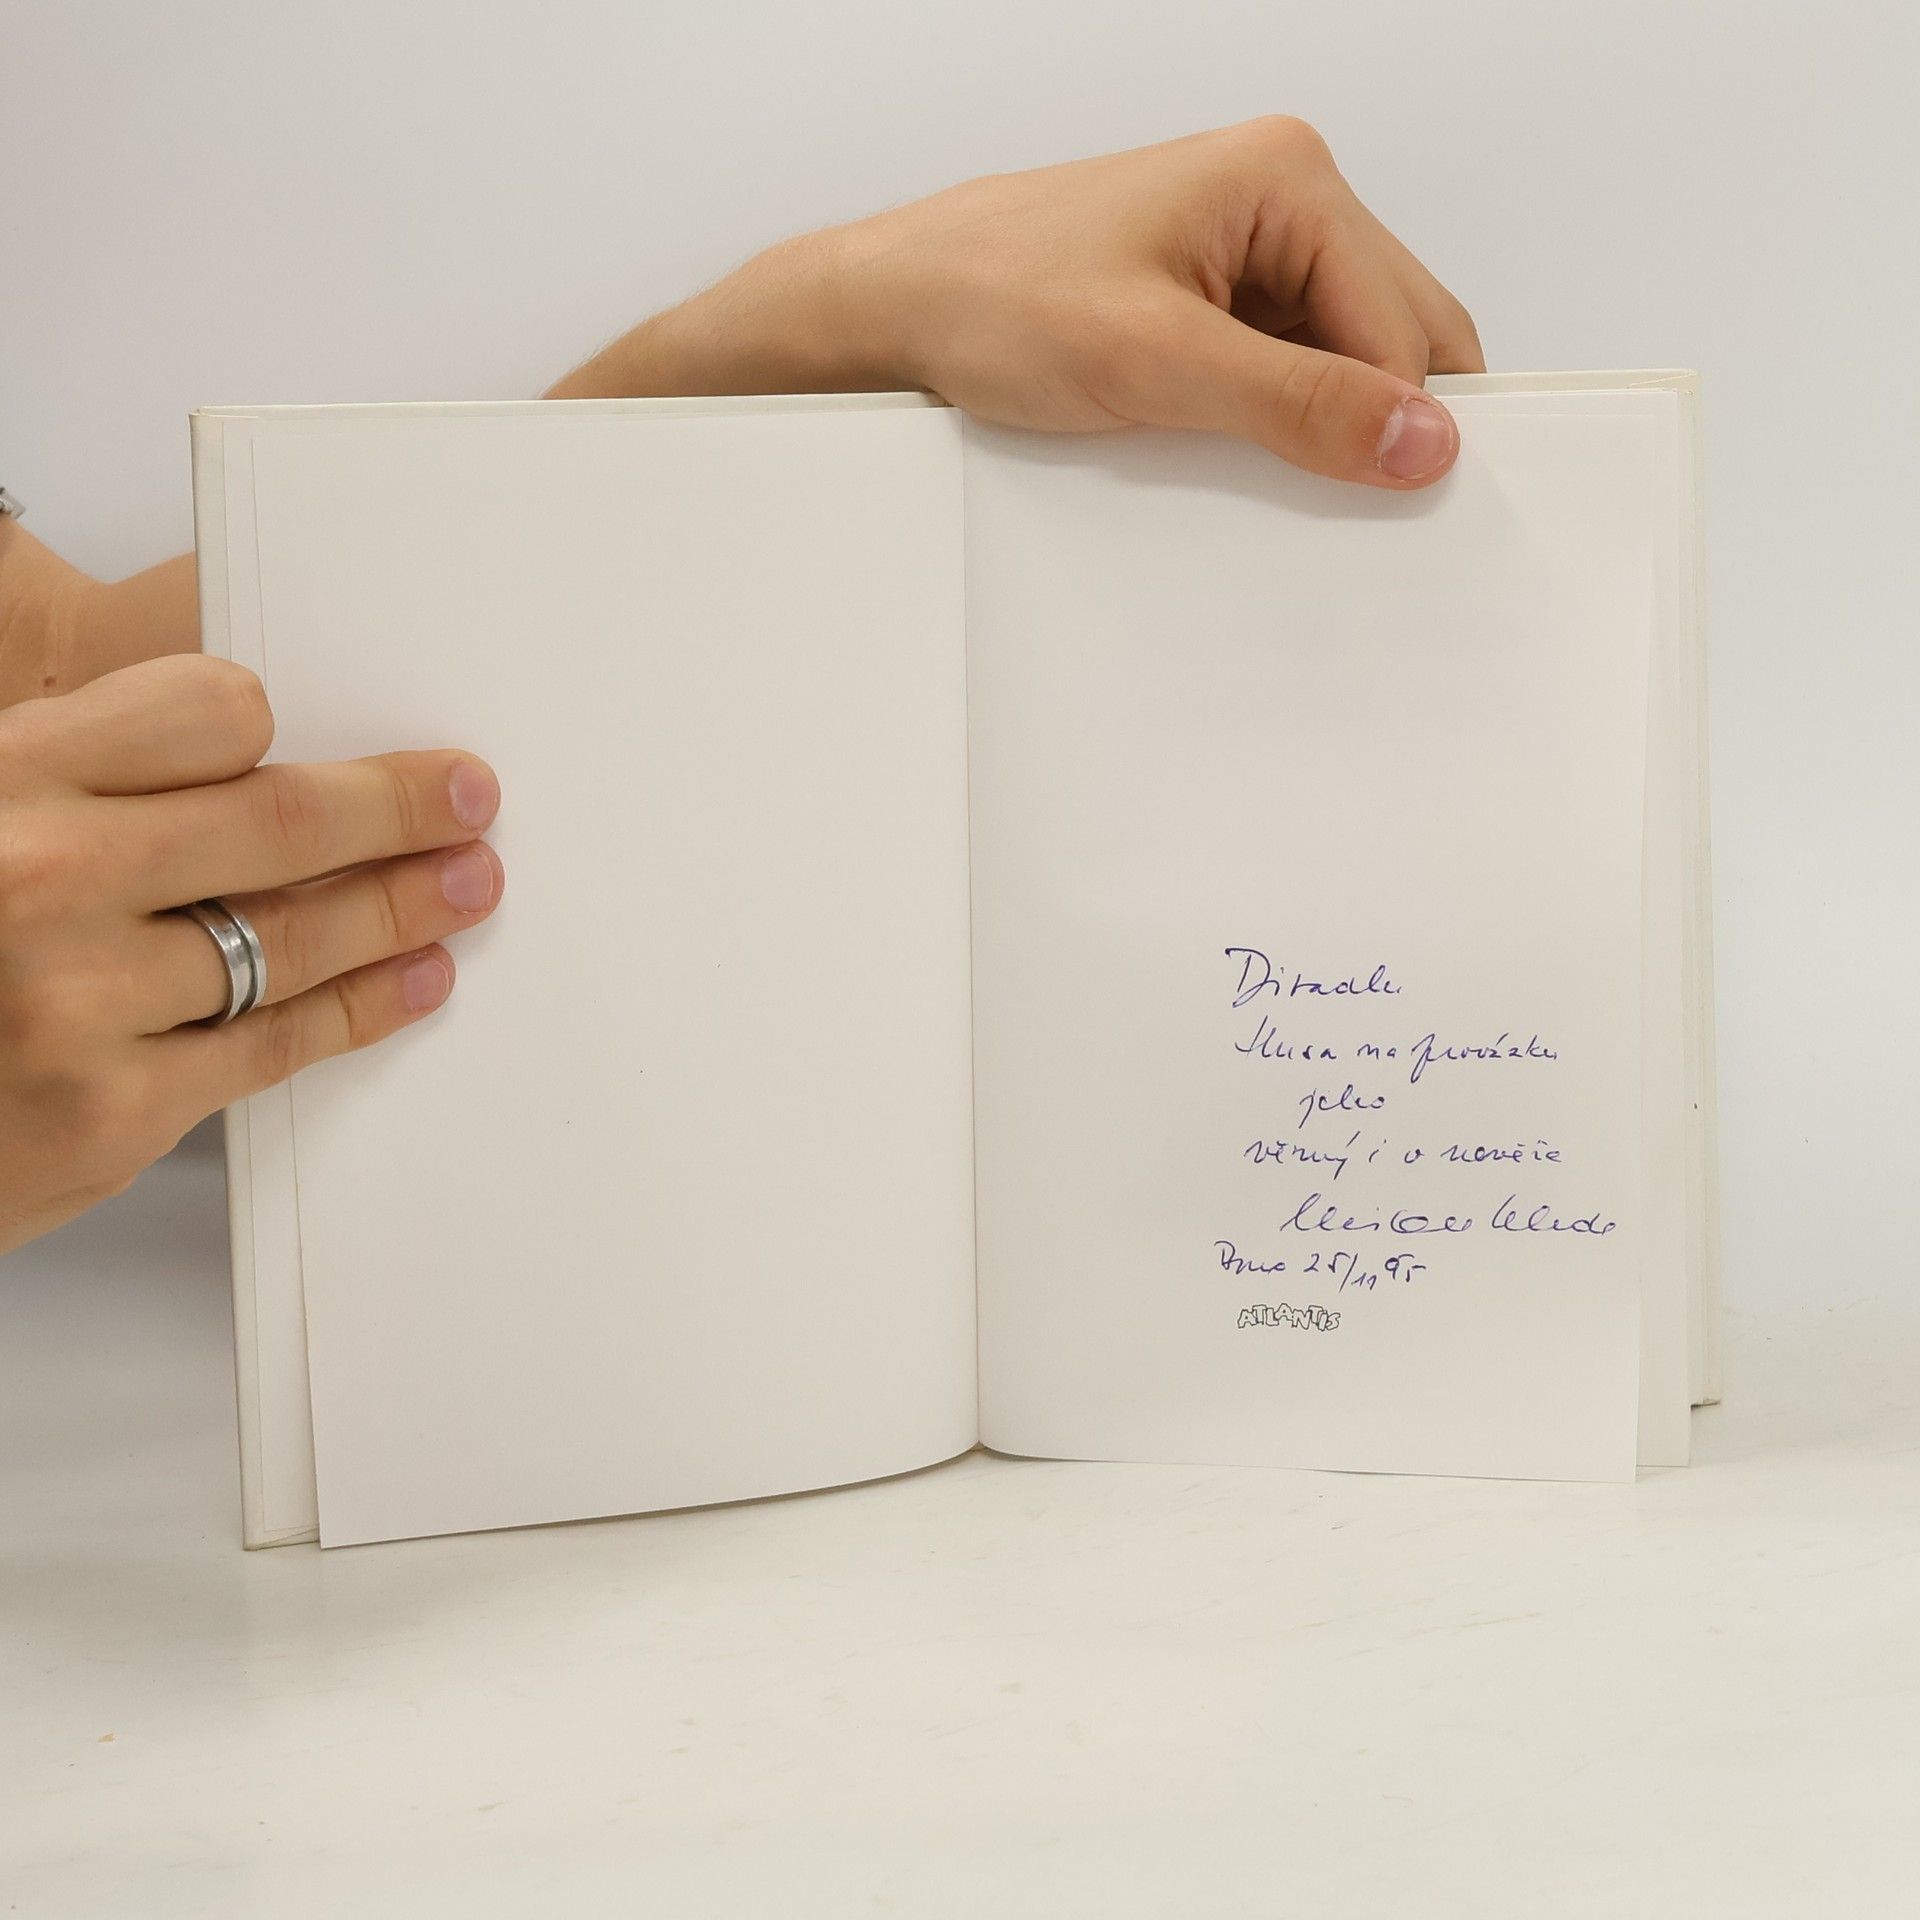 Divadlu
Husa na provázku
jako
věrný i v nevěře
Milan Uhde
Brno 25/11 95
ATLANTIS